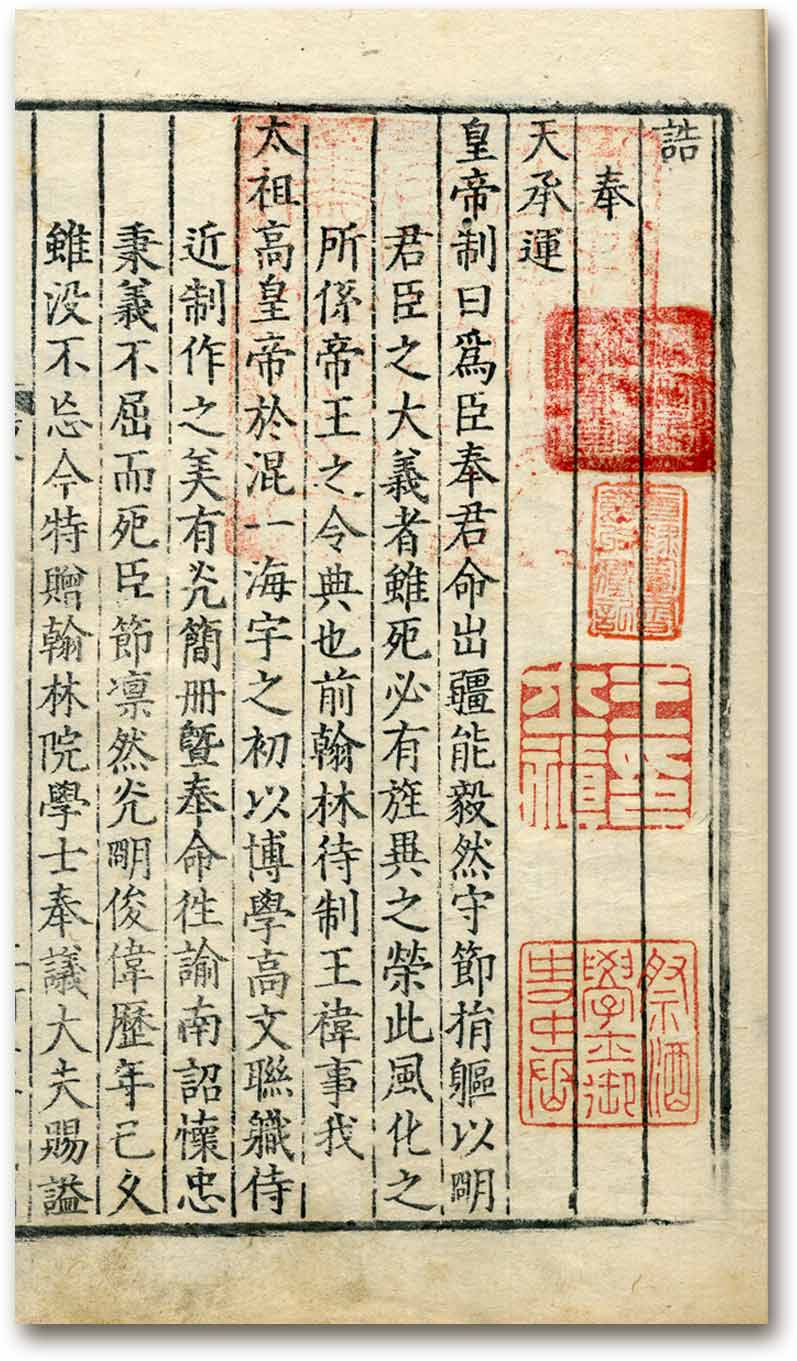 誥
奉
天承運
皇帝制曰爲臣奉君命出疆能毅然守節捐軀以明
君臣之大義者雖死必有旌異之榮此風化之
所係帝王之令典也前翰林待制王禕事我
太祖高皇帝於混一海宇之初以博學高文聯軄侍
近制作之美有光簡冊曁奉命徃諭南詔懷忠
秉義不屈而死臣節凛然光明俊偉歷年已久
雖没不忘今特贈翰林院學士奉議大夫賜謚